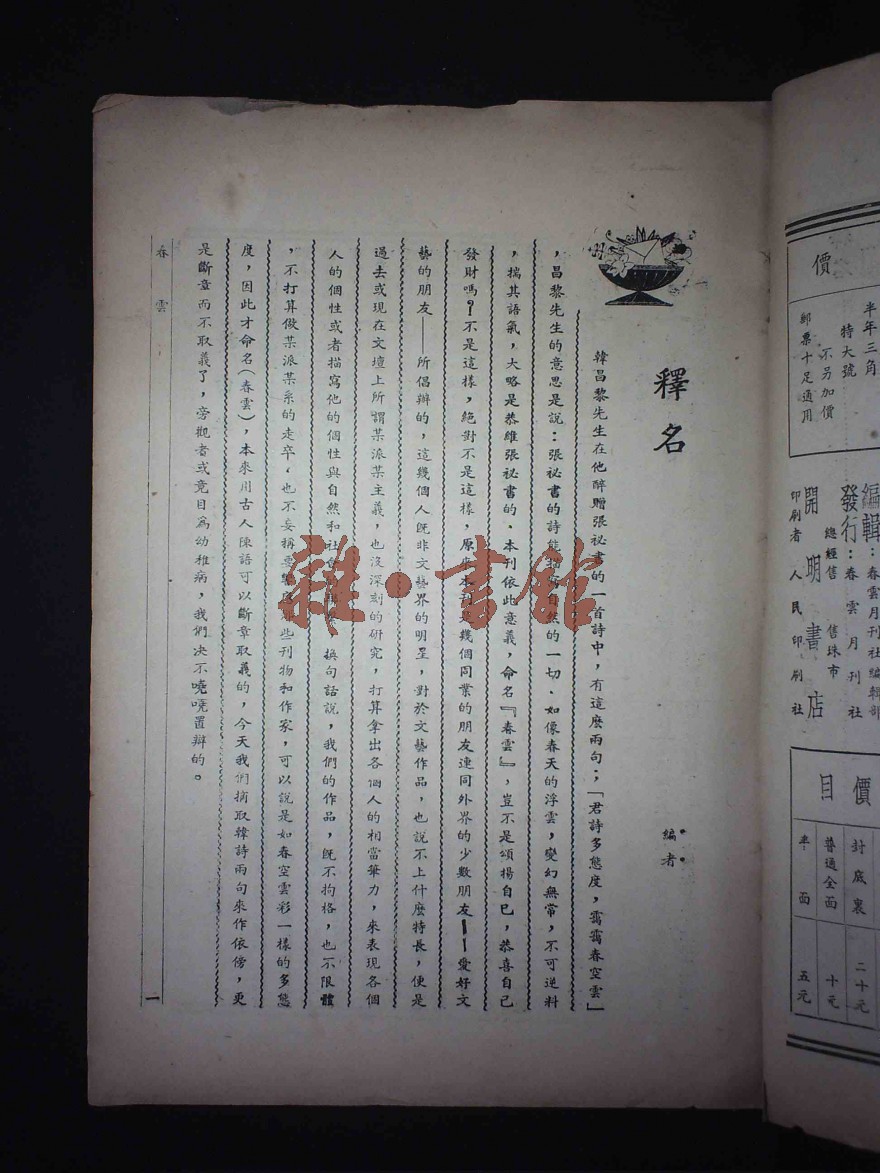 價
半年三角
特大號
不另加價
郵票十足通用
編輯：春雲月刊社編輯部
發行：春雲月刊社
總經售 售珠市
開明書店
印刷者 人民印刷社
價目
封底裏 二十元
普通全面 十元
半面 五元
釋名
編者
韓昌黎先生在他醉贈張祕書的一首詩中，有這麽兩句；「君詩多態度，靄靄春空雲」
，昌黎先生的意思是說：張祕書的詩能描寫自然的一切．如像春天的浮雲，變幻無常，不可逆料
，揣其語氣，大略是恭維張祕書的．本刊依此意義，命名『春雲』，豈不是頌揚自已，恭喜自己
發財嗎？不是這樣，絕對不是這樣，原來本刊是幾個同業的朋友連同外界的少數朋友——愛好文
藝的朋友——所倡辦的，這幾個人旣非文藝界的明星，對於文藝作品，也說不上什麽特長，便是
過去或現在文壇上所謂某派某主義，也沒深刻的研究，打算拿出各個人的相當筆力，來表現各個
人的個性或者描寫他的個性與自然和社會 換句話說，我們的作品，旣不拘格，也不限體
，不打算做某派某系的走卒，也不妄稱要 些刊物和作家，可以說是如春空雲彩一樣的多態
度，因此才命名（春雲），本來用古人陳語可以斷章取義的，今天我們摘取韓詩兩句來作依傍，更
是斷章而不取義了，旁觀者或竟目爲幼稚病，我們决不嘵嘵置辯的。
春雲
一
雜·書館